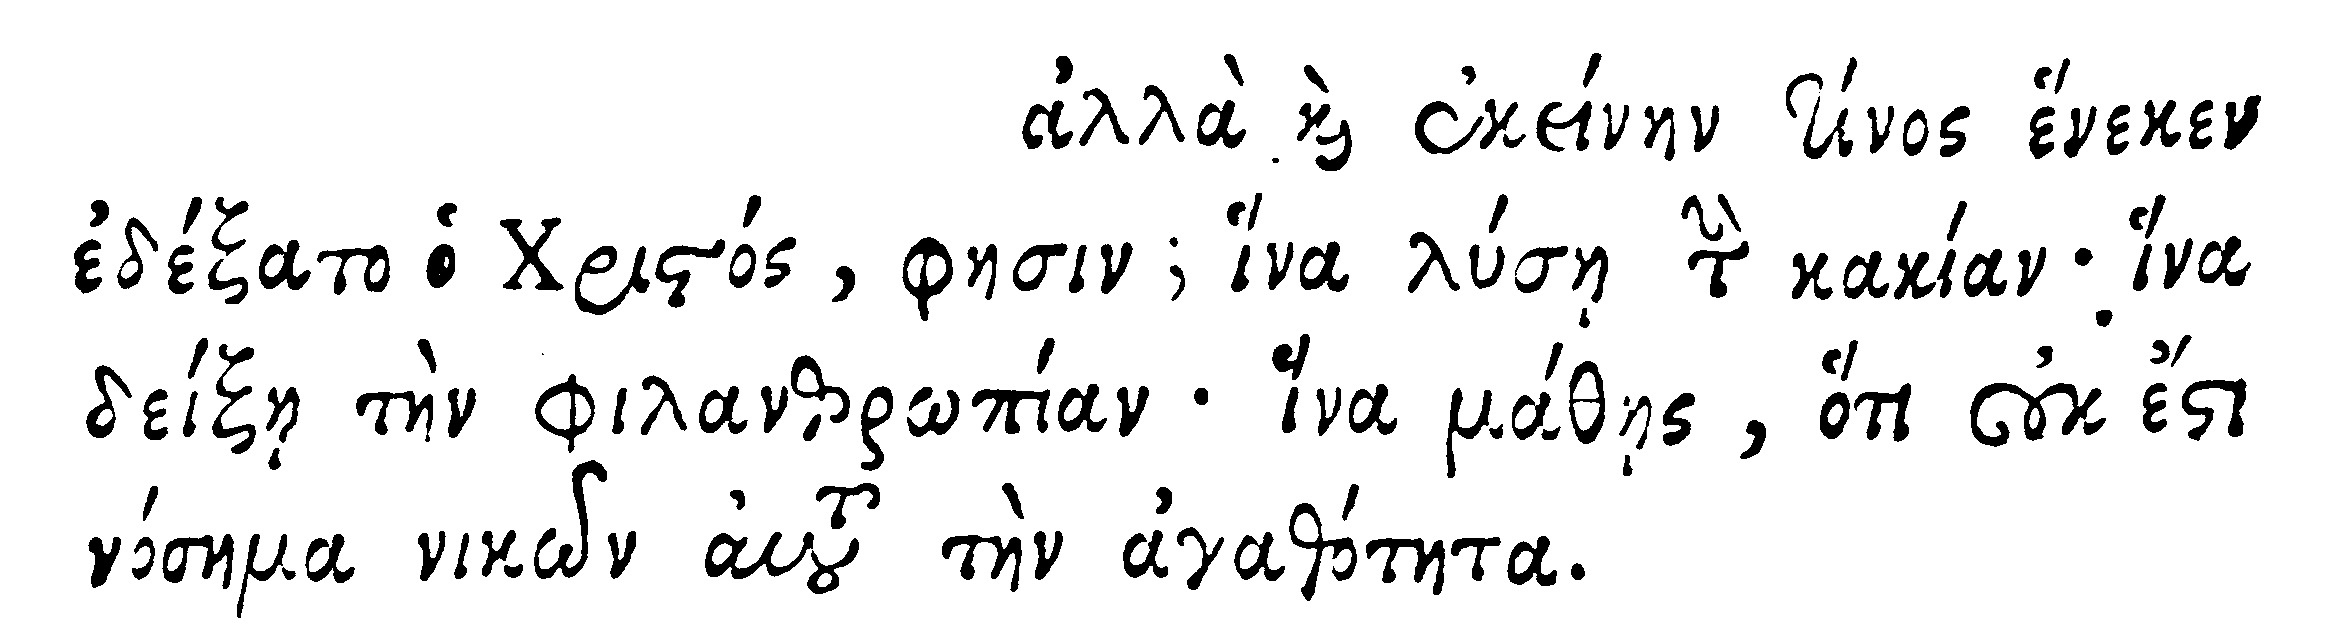 ἀλλὰ ϗ̀ ἐκείνην τίνος ἕνεκεν
ἐδέξατο ὁ Χριστός, φησιν; ἵνα λύσῃ τὴν κακίαν· ἵνα
δείξῃ τὴν φιλανθρωπίαν· ἵνα μάθῃς, ὅτι οὐκ ἔστι
νόσημα νικῶν αὐτοῦ τὴν ἀγαθότητα.